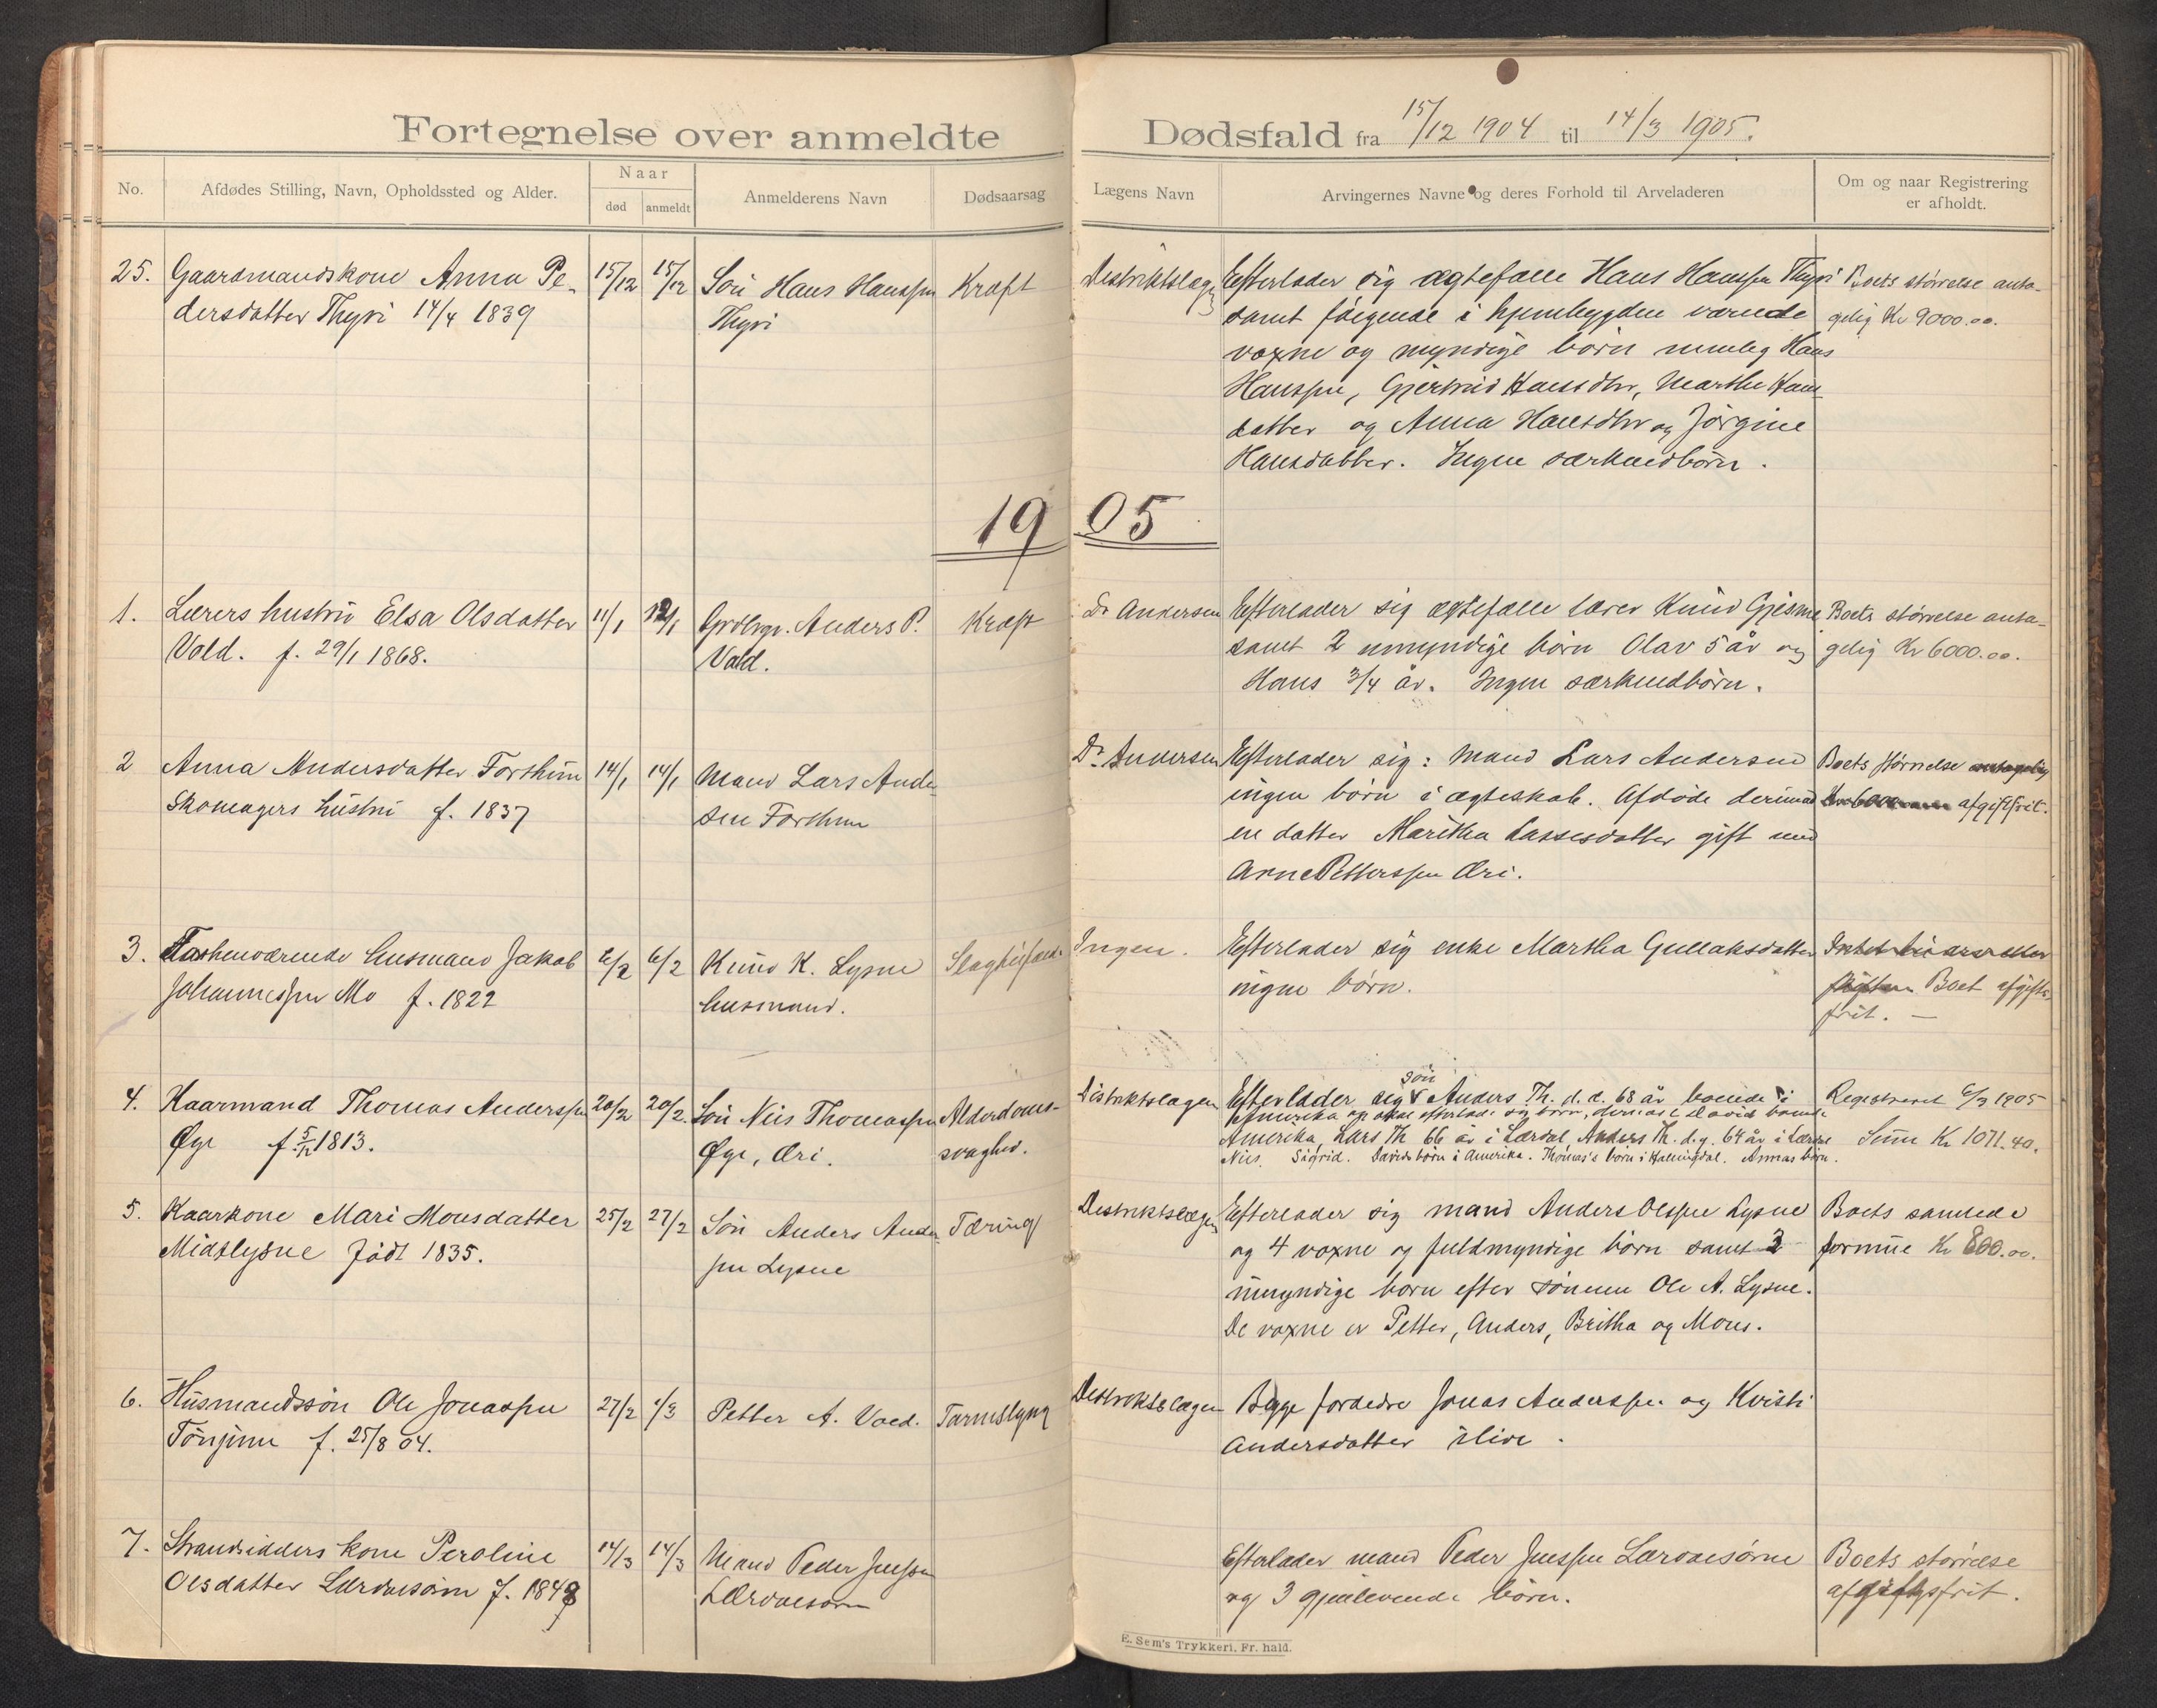 Fortegnelse over anmeldte
Dødsfald fra 15/12 1904 til 14/3 1905.
No.
Afdødes Stilling, Navn, Opholdssted og Alder.
Naar
død
anmeldt
Anmelderens Navn
Dødsaarsag
Lægens Navn
Arvingernes Navne og deres Forhold til Arveladeren
Om og naar Registrering
er afholdt.
25.
Gaardmandskone Anna Pe-
dersdatter Thyri 14/4 1839
15/12
15/12
Søn Hans Hanssen
Thyri
Kræft
Destriktslægen
Efterlader sig ægtefælle Hans Hanssen Thyri
samt følgende i hjembygden værende
voxne og myndige børn nemlig Hans
Hanssen, Gjertrud Hansdtr, Marthe Hans
datter og Anna Hansdtr og Jørgine
Hansdatter. Ingen særkuldbørn.
Boets størrelse anta-
gelig Kr 9000.00.
1905
1.
Lærers hustru Elsa Olsdatter
Vold. f. 29/1 1868.
11/1
12/1
Grdbrgr. Anders P.
Vold.
Kræft
Dr Andersen
Efterlader sig ægtefælle lærer Knud Gjesme
samt 2 umyndige børn Olav 5 år og
Hans 3/4 år. Ingen særkuldbørn.
Boets størrelse anta-
gelig Kr 6000.00.
2
Anna Andersdatter Forthun
Skomagers hustru f. 1837
14/1
14/1
Mand Lars Ander
sen Forthun
Dr. Andersen
Efterlader sig: mand Lars Andersen
ingen børn i ægteskab. Afdøde derimod
en datter Maritha Lassesdatter gift med
Arne Petterssen Øri.
Boets størrelse antagelig
Kr 6000 afgiftfrit.
3.
Forhenværende husmand Jakob
Johannessen Mo f. 1822
6/2
6/2
Knud K. Lysne
husmand.
Slagtilfælde
Ingen.
Efterlader sig enke Martha Gullaksdatter
ingen børn.
Intet
Boet afgifts
frit. —
4.
Kaarmand Thomas Anderssen
Øye f 5/12 1813.
20/2
20/2.
Søn Nils Thomassen
Øye, Øri.
Alderdoms-
svaghed.
Distriktslægen
søn
Efterlader sig Anders Th. d. æ. 68 år boende i
Amerika og skal efterlade sig børn, dernæst David boende
Amerika, Lars Th 66 år i Lærdal, Anders Th. d.y. 64 år i Lærdal
Nils. Sigrid. Davids børn i Amerika. Thomas's børn i Hallingdal. Annas børn.
Registreret 6/3 1905
Sum Kr 1071.40.
5.
Kaarkone Mari Monsdatter
Midtlysne født 1835.
25/2
27/2
Søn Anders Ander
ssen Lysne
Tæring
Destriktslægen
Efterlader sig mand Anders Olssen Lysne
og 4 voxne og fuldmyndige børn samt 3
umyndige børn efter sønnen Ole A. Lysne.
De voxne er Petter, Anders, Britha og Mons.
Boets samlede
formue Kr 800.00.
6.
Husmandssøn Ole Jonassen
Tønjum f. 25/8 04.
27/2
1/3
Petter A. Vold.
Tarmslyng
Destriktslægen
Begge foreldre Jonas Anderssen og Kristi
Andersdatter ilive.
7.
Strandsidders kone Peroline
Olsdatter Lærdalsøren f. 1848
14/3
14/3
Mand Peder Jenssen
Lærdalsøren
Efterlader mand Peder Jenssen Lærdalsøren
og 3 gjenlevende børn.
Boets størrelse
afgiftsfrit.
E. Sem's Trykkeri, Fr. hald.